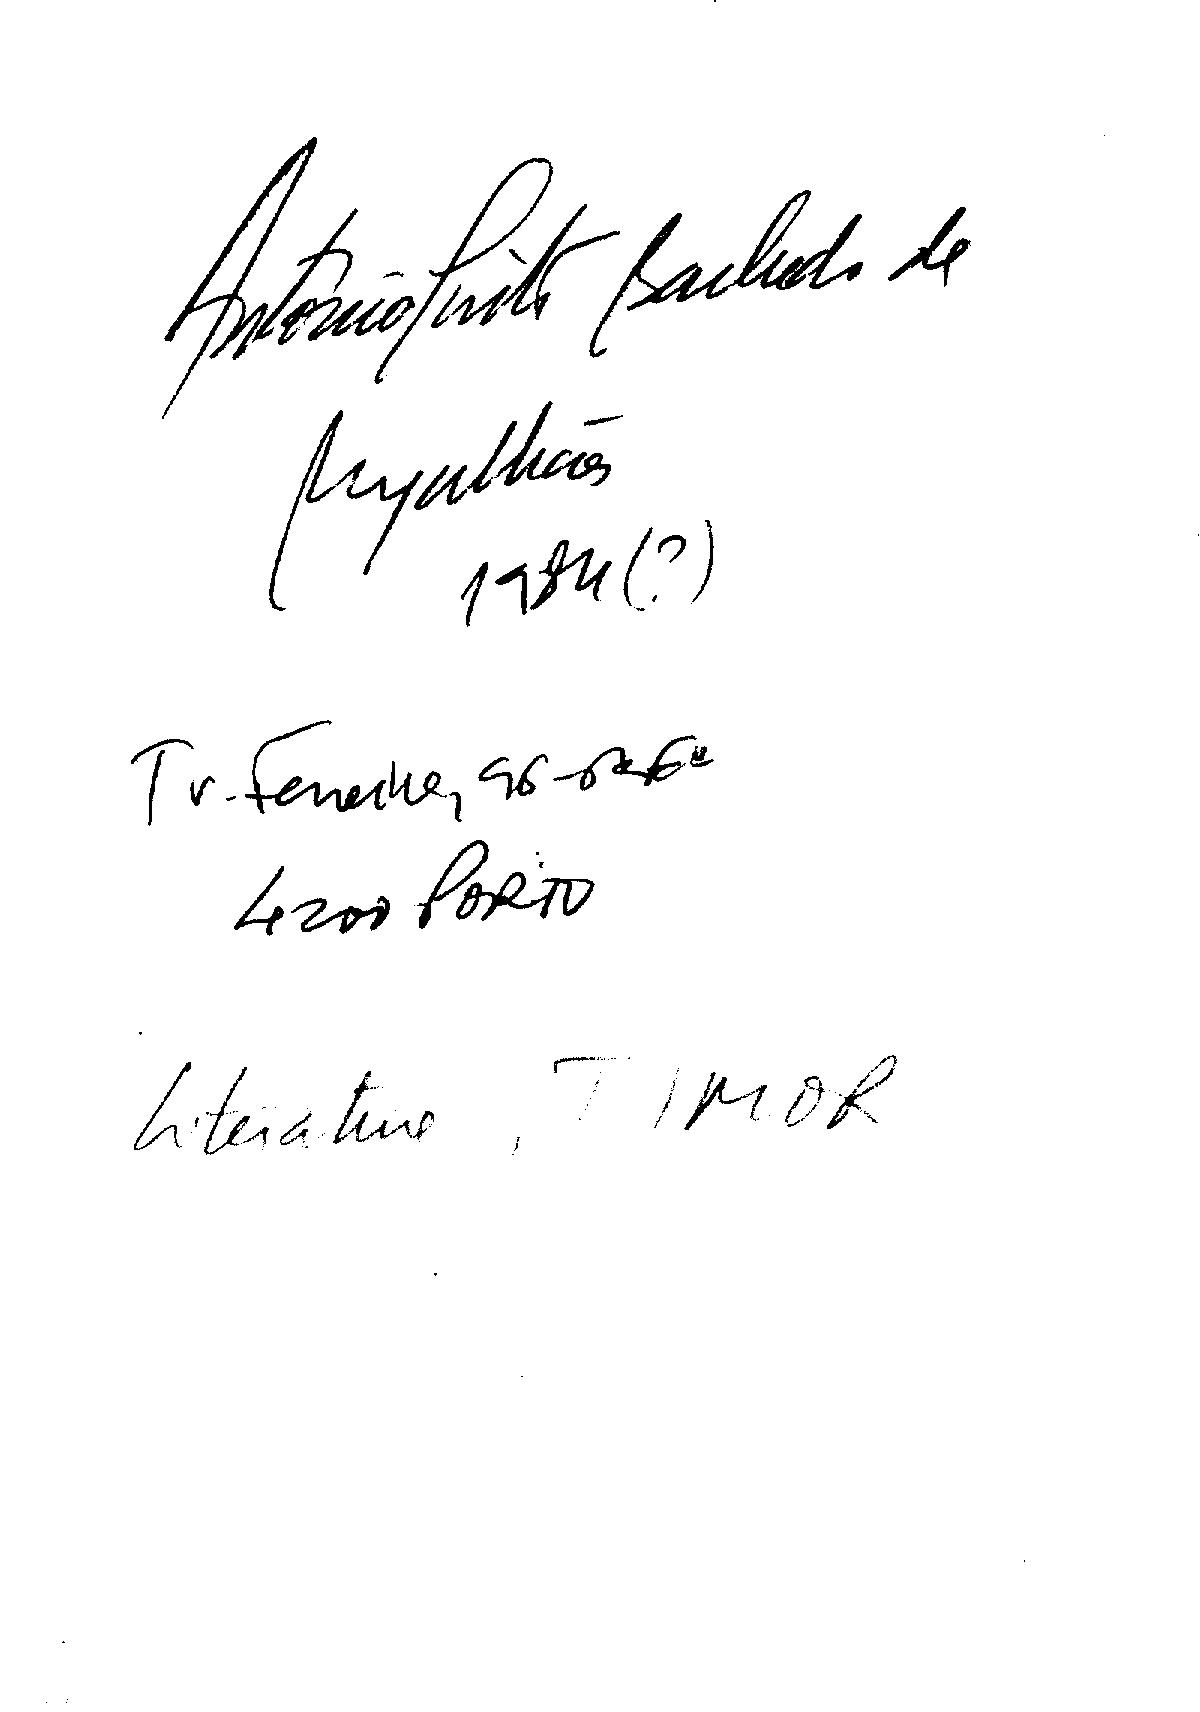 António Pinto Barbedo de
Magalhães
1984 (?)
Tv. Ferreira, 96-
4200 PORTO
Literature, TIMOR